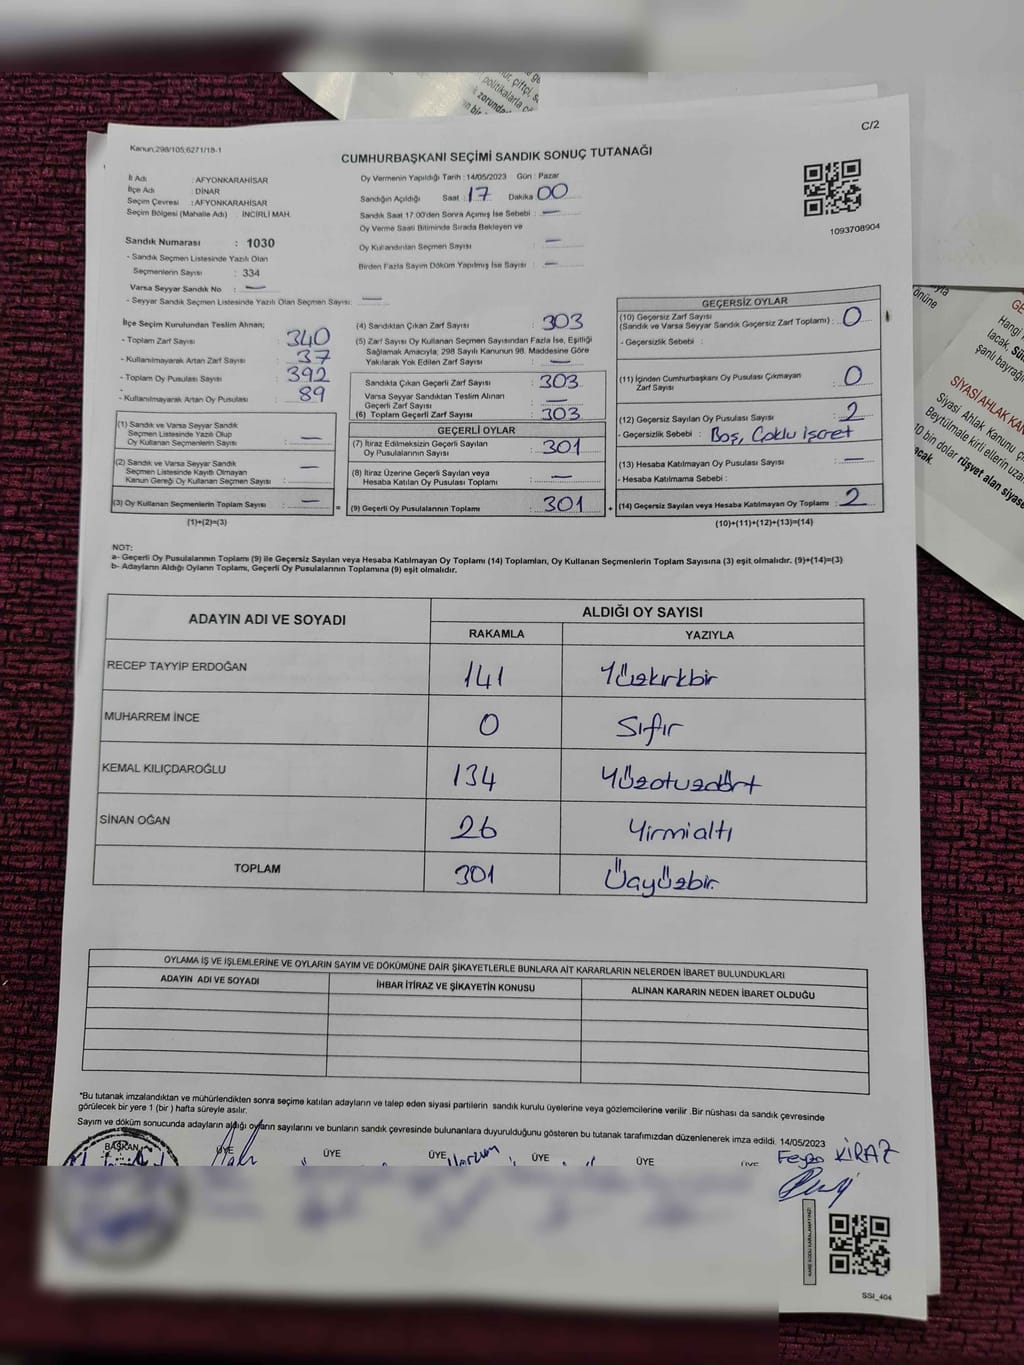 C/2
Kanun;298/105;6271/18-1
CUMHURBAŞKANI SEÇİMİ SANDIK SONUÇ TUTANAĞI
İl Adı : AFYONKARAHİSAR
İlçe Adı : DİNAR
Seçim Çevresi : AFYONKARAHİSAR
Seçim Bölgesi (Mahalle Adı) İNCİRLİ MAH.
Sandık Numarası : 1030
- Sandık Seçmen Listesinde Yazılı Olan
Seçmenlerin Sayısı : 334
Varsa Seyyar Sandık No : —
- Seyyar Sandık Seçmen Listesinde Yazılı Olan Seçmen Sayısı: —
Oy Vermenin Yapıldığı Tarih : 14/05/2023 Gün : Pazar
Sandığın Açıldığı Saat : 17 Dakika 00
Sandık Saat 17:00'den Sonra Açımış İse Sebebi : —
Oy Verme Saati Bitiminde Sırada Bekleyen ve
Oy Kullandırılan Seçmen Sayısı : —
Birden Fazla Sayım Döküm Yapılmış İse Sayısı : —
1093708904
İlçe Seçim Kurulundan Teslim Alınan;
- Toplam Zarf Sayısı : 340
- Kullanılmayarak Artan Zarf Sayısı : 37
- Toplam Oy Pusulası Sayısı : 392
- Kullanılmayarak Artan Oy Pusulası : 89
(1) Sandık ve Varsa Seyyar Sandık
Seçmen Listesinde Yazılı Olup
Oy Kullanan Seçmenlerin Sayısı : —
(2) Sandık ve Varsa Seyyar Sandık
Seçmen Listesinde Kayıtlı Olmayan
Kanun Gereği Oy Kullanan Seçmen Sayısı : —
(3) Oy Kullanan Seçmenlerin Toplam Sayısı : —
(1)+(2)=(3)
(4) Sandıktan Çıkan Zarf Sayısı : 303
(5) Zarf Sayısı Oy Kullanan Seçmen Sayısından Fazla İse, Eşitliği
Sağlamak Amacıyla; 298 Sayılı Kanunun 98. Maddesine Göre
Yakılarak Yok Edilen Zarf Sayısı : —
Sandıkta Çıkan Geçerli Zarf Sayısı : 303
Varsa Seyyar Sandıktan Teslim Alınan
Geçerli Zarf Sayısı : —
(6) Toplam Geçerli Zarf Sayısı : 303
GEÇERLİ OYLAR
(7) İtiraz Edilmeksizin Geçerli Sayılan
Oy Pusulalarının Sayısı : 301
(8) İtiraz Üzerine Geçerli Sayılan veya
Hesaba Katılan Oy Pusulası Toplamı : —
= (9) Geçerli Oy Pusulalarının Toplamı : 301 +
GEÇERSİZ OYLAR
(10) Geçersiz Zarf Sayısı
(Sandık ve Varsa Seyyar Sandık Geçersiz Zarf Toplamı) : 0
- Geçersizlik Sebebi :
(11) İçinden Cumhurbaşkanı Oy Pusulası Çıkmayan
Zarf Sayısı : 0
(12) Geçersiz Sayılan Oy Pusulası Sayısı : 2
- Geçersizlik Sebebi : Boş, Çoklu işaret
(13) Hesaba Katılmayan Oy Pusulası Sayısı : —
- Hesaba Katılmama Sebebi :
(14) Geçersiz Sayılan veya Hesaba Katılmayan Oy Toplamı : 2
(10)+(11)+(12)+(13)=(14)
NOT:
a- Geçerli Oy Pusulalarının Toplamı (9) ile Geçersiz Sayılan veya Hesaba Katılmayan Oy Toplamı (14) Toplamları, Oy Kullanan Seçmenlerin Toplam Sayısına (3) eşit olmalıdır. (9)+(14)=(3)
b- Adayların Aldığı Oyların Toplamı, Geçerli Oy Pusulalarının Toplamına (9) eşit olmalıdır.
ADAYIN ADI VE SOYADI ALDIĞI OY SAYISI
RAKAMLA YAZIYLA
RECEP TAYYİP ERDOĞAN 141 Yüzkırkbir
MUHARREM İNCE 0 Sıfır
KEMAL KILIÇDAROĞLU 134 Yüzotuzdört
SİNAN OĞAN 26 Yirmialtı
TOPLAM 301 Üçyüzbir
OYLAMA İŞ VE İŞLEMLERİNE VE OYLARIN SAYIM VE DÖKÜMÜNE DAİR ŞİKAYETLERLE BUNLARA AİT KARARLARIN NELERDEN İBARET BULUNDUKLARI
ADAYIN ADI VE SOYADI İHBAR İTİRAZ VE ŞİKAYETİN KONUSU ALINAN KARARIN NEDEN İBARET OLDUĞU
*Bu tutanak imzalandıktan ve mühürlendikten sonra seçime katılan adayların ve talep eden siyasi partilerin sandık kurulu üyelerine veya gözlemcilerine verilir .Bir nüshası da sandık çevresinde
görülecek bir yere 1 (bir ) hafta süreyle asılır.
Sayım ve döküm sonucunda adayların aldığı oyların sayılarını ve bunların sandık çevresinde bulunanlara duyurulduğunu gösteren bu tutanak tarafımızdan düzenlenerek imza edildi. 14/05/2023
BAŞKAN ÜYE ÜYE ÜYE ÜYE ÜYE
KİRAZ
SSI_404
SİYASİ AHLAK KAN
Siyasi Ahlak Kanunu ç
Beytülmale kirli ellerin uza
10 bin dolar rüşvet alan siyase